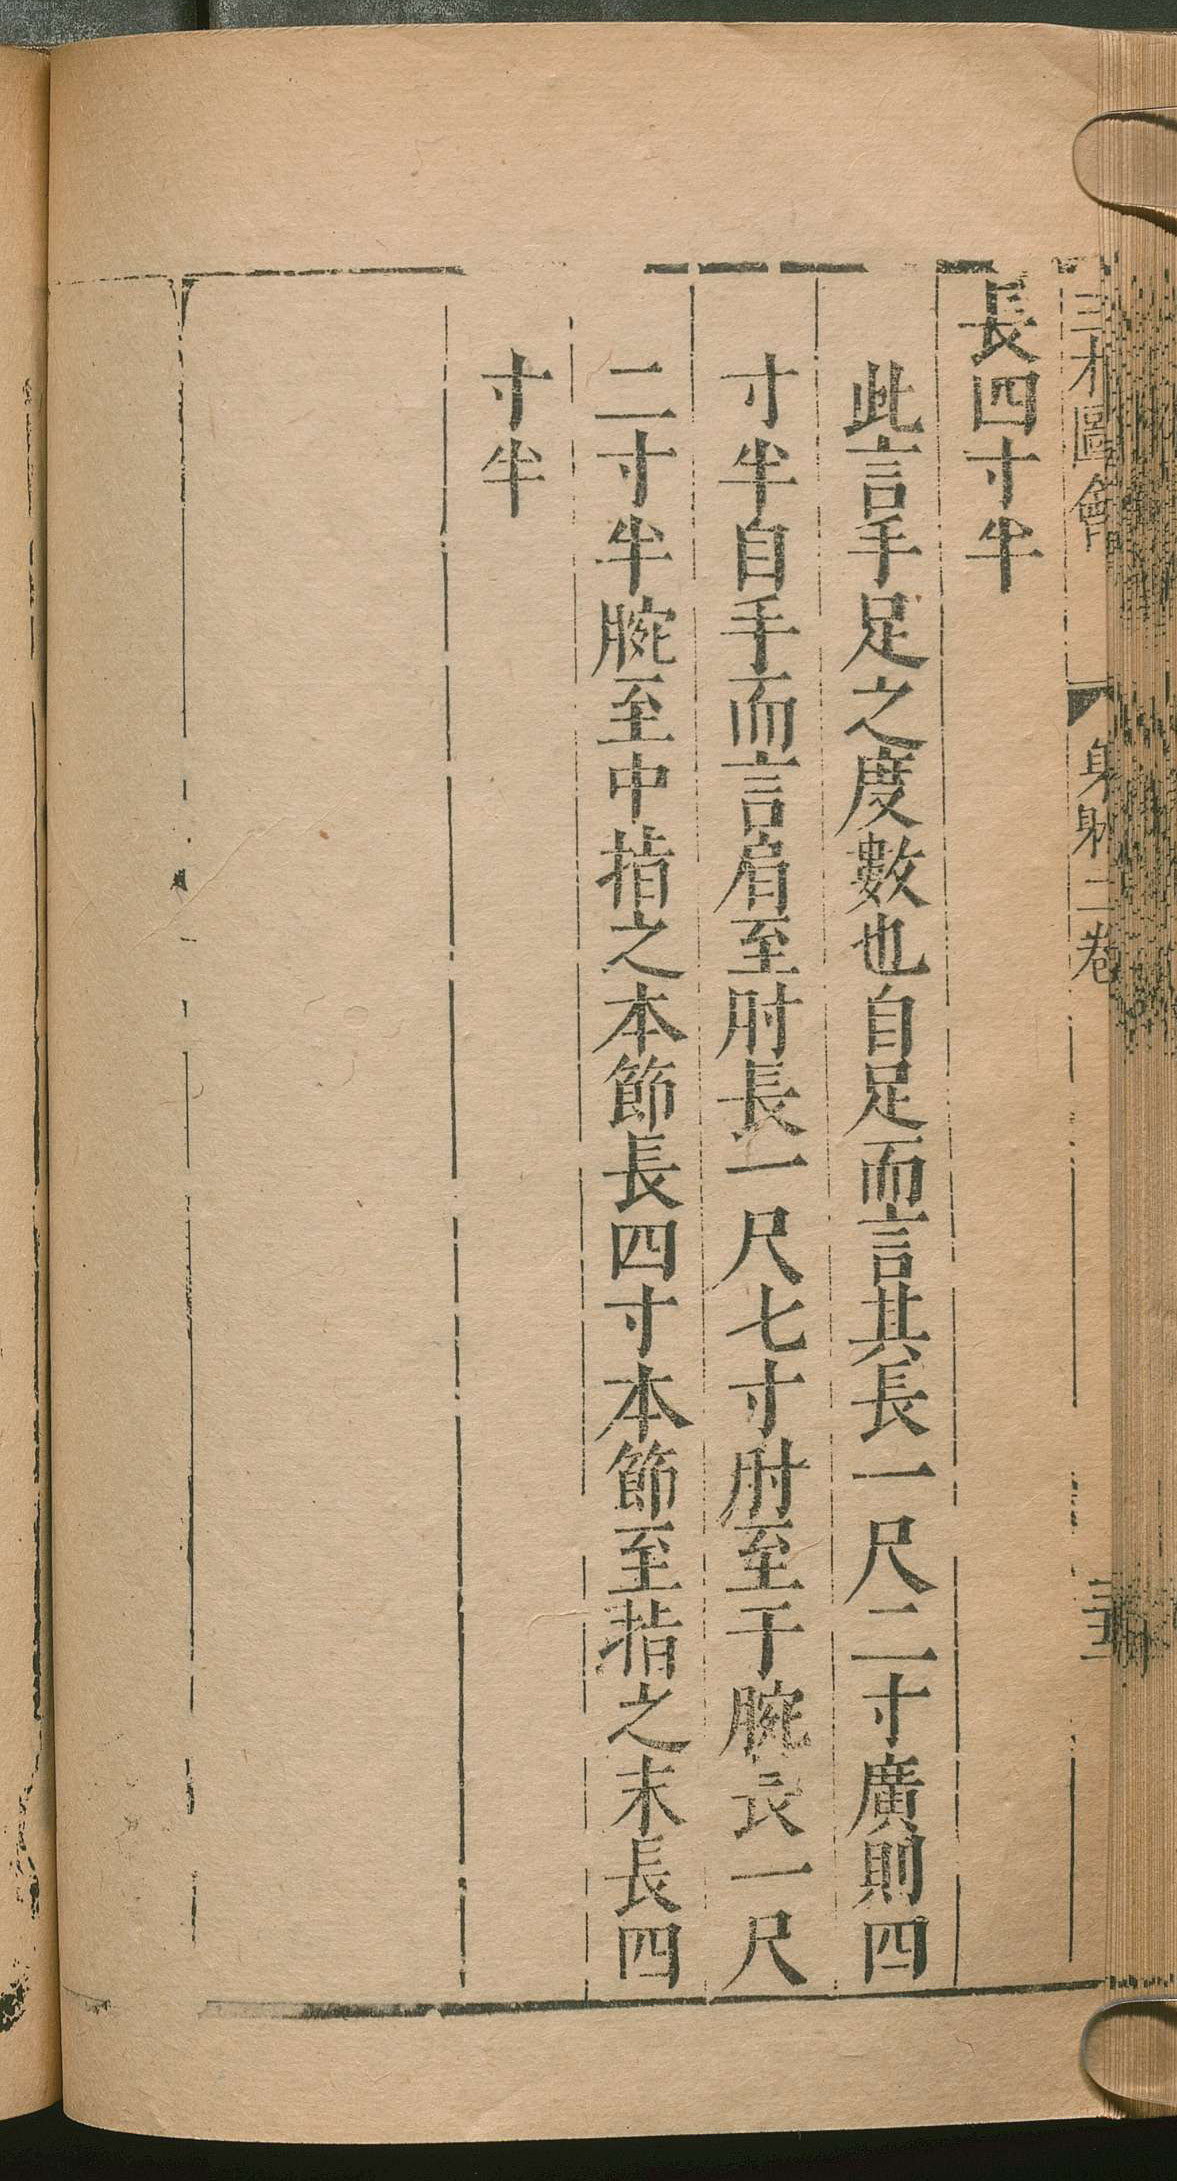 三才圖會 身體二卷
長四寸半
此言手足之度數也自足而言其長一尺二寸廣則四
寸半自手而言肩至肘長一尺七寸肘至于腕長一尺
二寸半腕至中指之本節長四寸本節至指之末長四
寸半